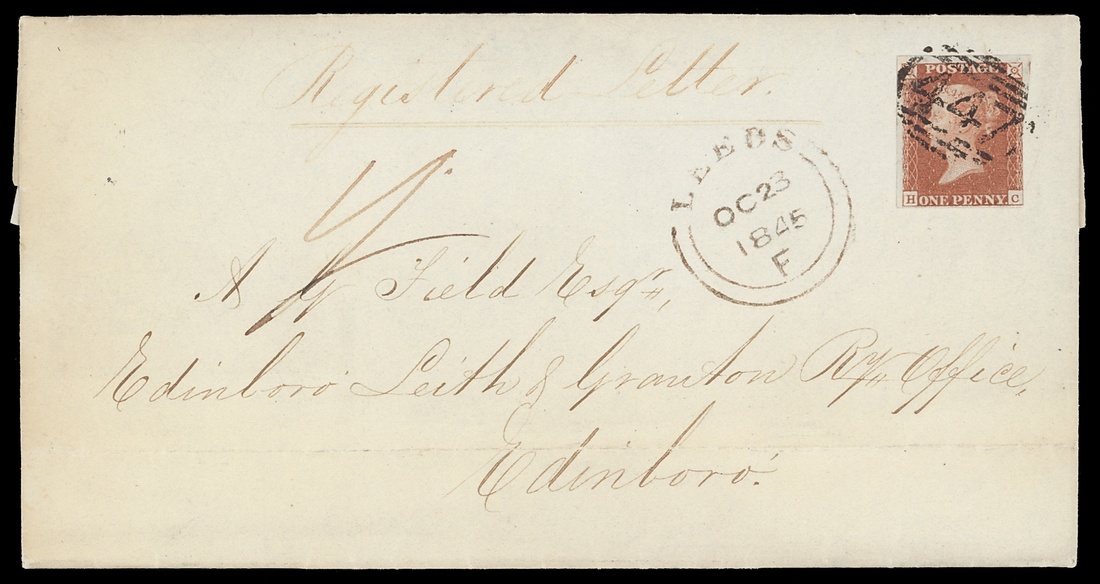 Registered Letter.
POSTAGE
LEEDS
OC 23
1845
F
H ONE PENNY. C
A Field Esqr,
Edinboro Leith & Granton Ry Office,
Edinboro.